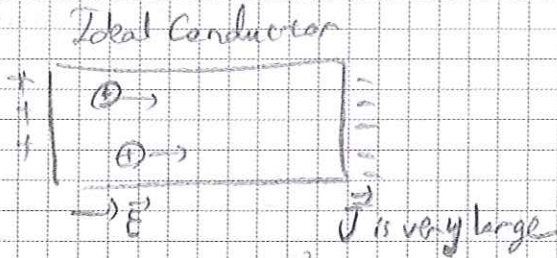 Ideal Conductor
+ + +
+
+
- - - - -
E
J is very large